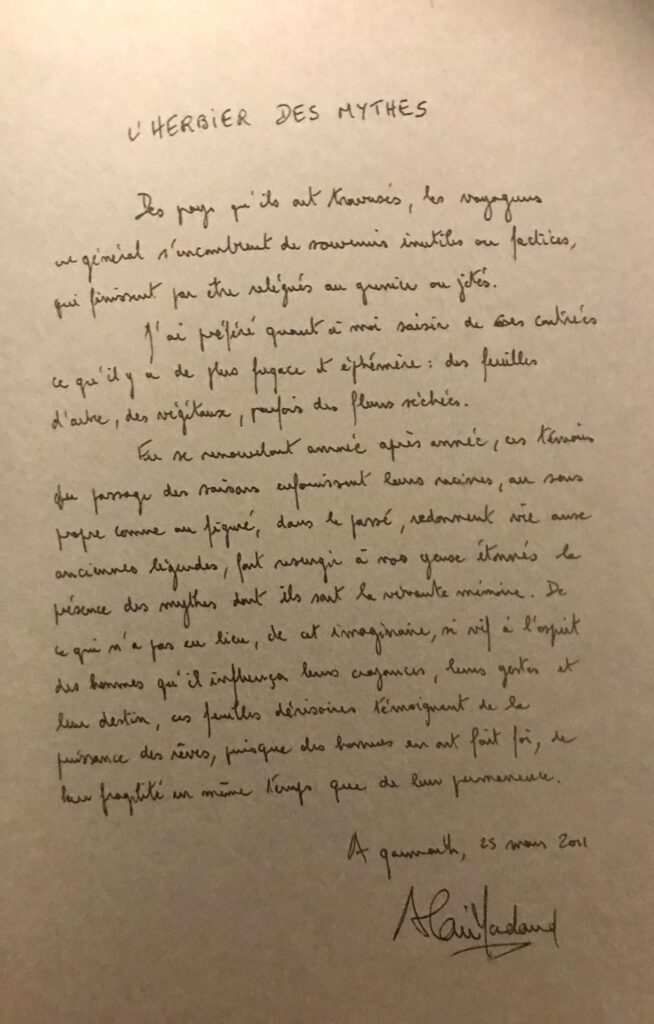 L'HERBIER DES MYTHES
Des pays qu'ils ont traversés, les voyageurs
en général s'encombrent de souvenirs inutiles ou factices,
qui finissent par être relégués au grenier ou jetés.
J'ai préféré quant à moi saisir de ces contrées
ce qu'il y a de plus fugace et éphémère : des feuilles
d'arbre, des végétaux, parfois des fleurs séchées.
En se renouvelant année après année, ces témoins
du passage des saisons enfouissent leurs racines, au sens
propre comme au figuré, dans le passé, redonnent vie aux
anciennes légendes, font resurgir à nos yeux étonnés la
présence des mythes dont ils sont la vivante mémoire. De
ce qui n'a pas eu lieu, de cet imaginaire, si vif à l'esprit
des hommes qu'il influença leurs croyances, leurs gestes et
leur destin, ces feuilles dérisoires témoignent de la
puissance des rêves, puisque des hommes en ont fait foi, de
leur fragilité en même temps que de leur permanence.
A , 25 mars 2011
Alain Nadaud